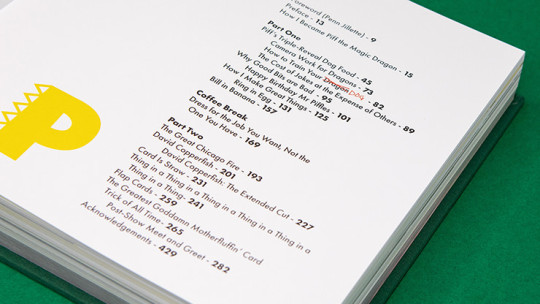 Foreword (Penn Jillette) - 9
Preface - 13
How I Became Piff the Magic Dragon - 15
Part One
Piff's Triple-Reveal Dog Food - 45
Camera Work for Dragons - 73
How to Train Your Dragon Dog - 82
The Cost of Jokes at the Expense of Others - 89
Why Good Bits are Bad - 95
Happy Birthday Mr Piffles - 101
How I Make Great Things - 125
Ring in Egg - 131
Bill in Banana - 157
Coffee Break
Dress for the Job You Want, Not the
One You Have - 169
Part Two
The Great Chicago Fire - 193
David Copperfish - 201
David Copperfish: The Extended Cut - 227
Card Is Straw - 231
Thing in a Thing in a Thing in a Thing in a Thing in a
Thing in a Thing- 241
Flap Cards - 259
The Greatest Goddamn Motherfluffin' Card
Trick of All Time- 265
Post-Show Meet and Greet - 282
Acknowledgements - 429
P